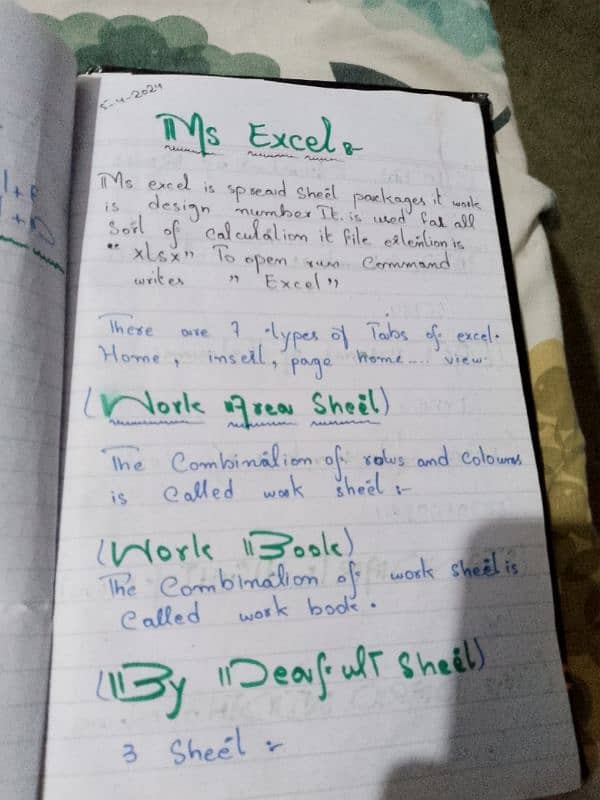 5-4-2024
Ms Excel :-
Ms excel is spread sheet packages it work
is design number It. is used for all
Sort of calculation it file extention is
" xlsx" To open run command
writes " Excel"
There are 7 types of Tabs of excel.
Home, insert, page home.... view.
(Work Area Sheet)
The Combination of rows and coloums
is called work sheet :-
(Work Book)
The Combination of work sheet is
called work book.
(By Deafult Sheet)
3 Sheet :-